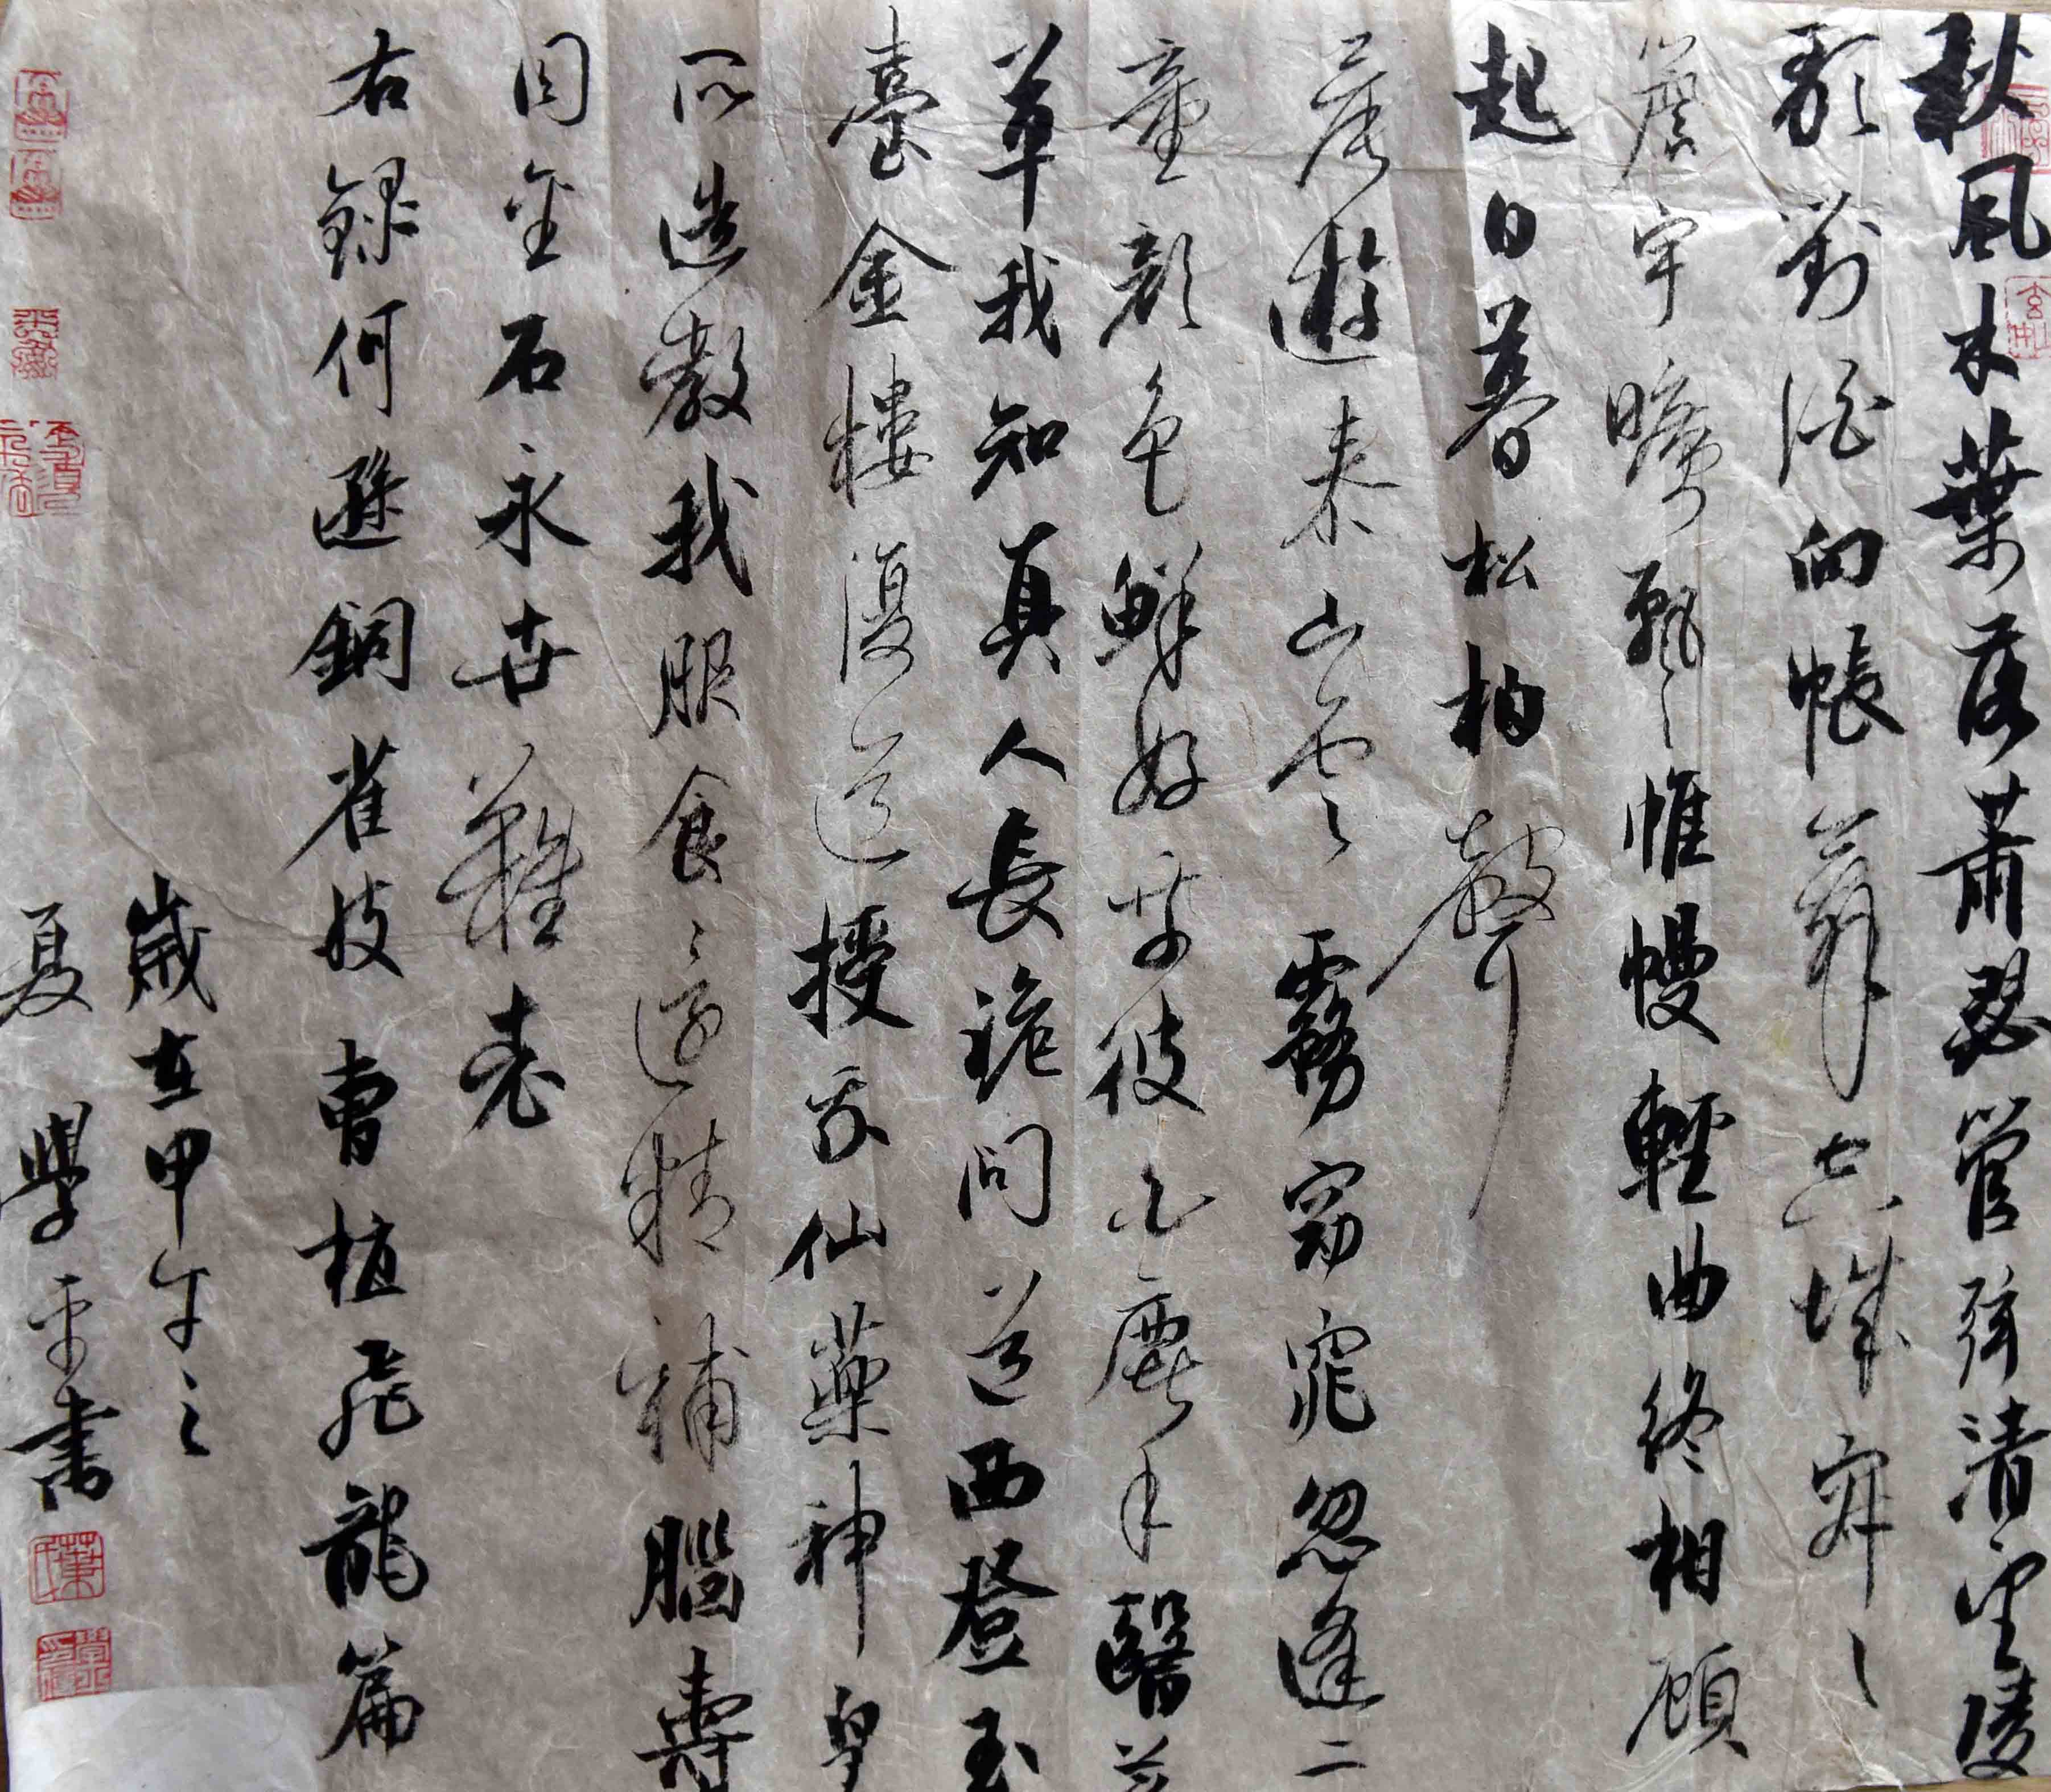 秋風木葉落蕭瑟管弦清望陵
歌對酒向帳舞空城寂〻
簷宇曠飄〻帷幔輕曲終相顧
起日暮松柏聲
晨遊泰山雲霧窈窕忽逢二
童顏色鮮好乘彼白鹿手醫芝
草我知真人長跪問道西登玉
臺金樓復道授我仙藥神皇
所造教我服食〻還精補腦壽
同金石永世難老
右錄何遜銅雀妓曹植飛龍篇
歲在甲午之
夏學平書